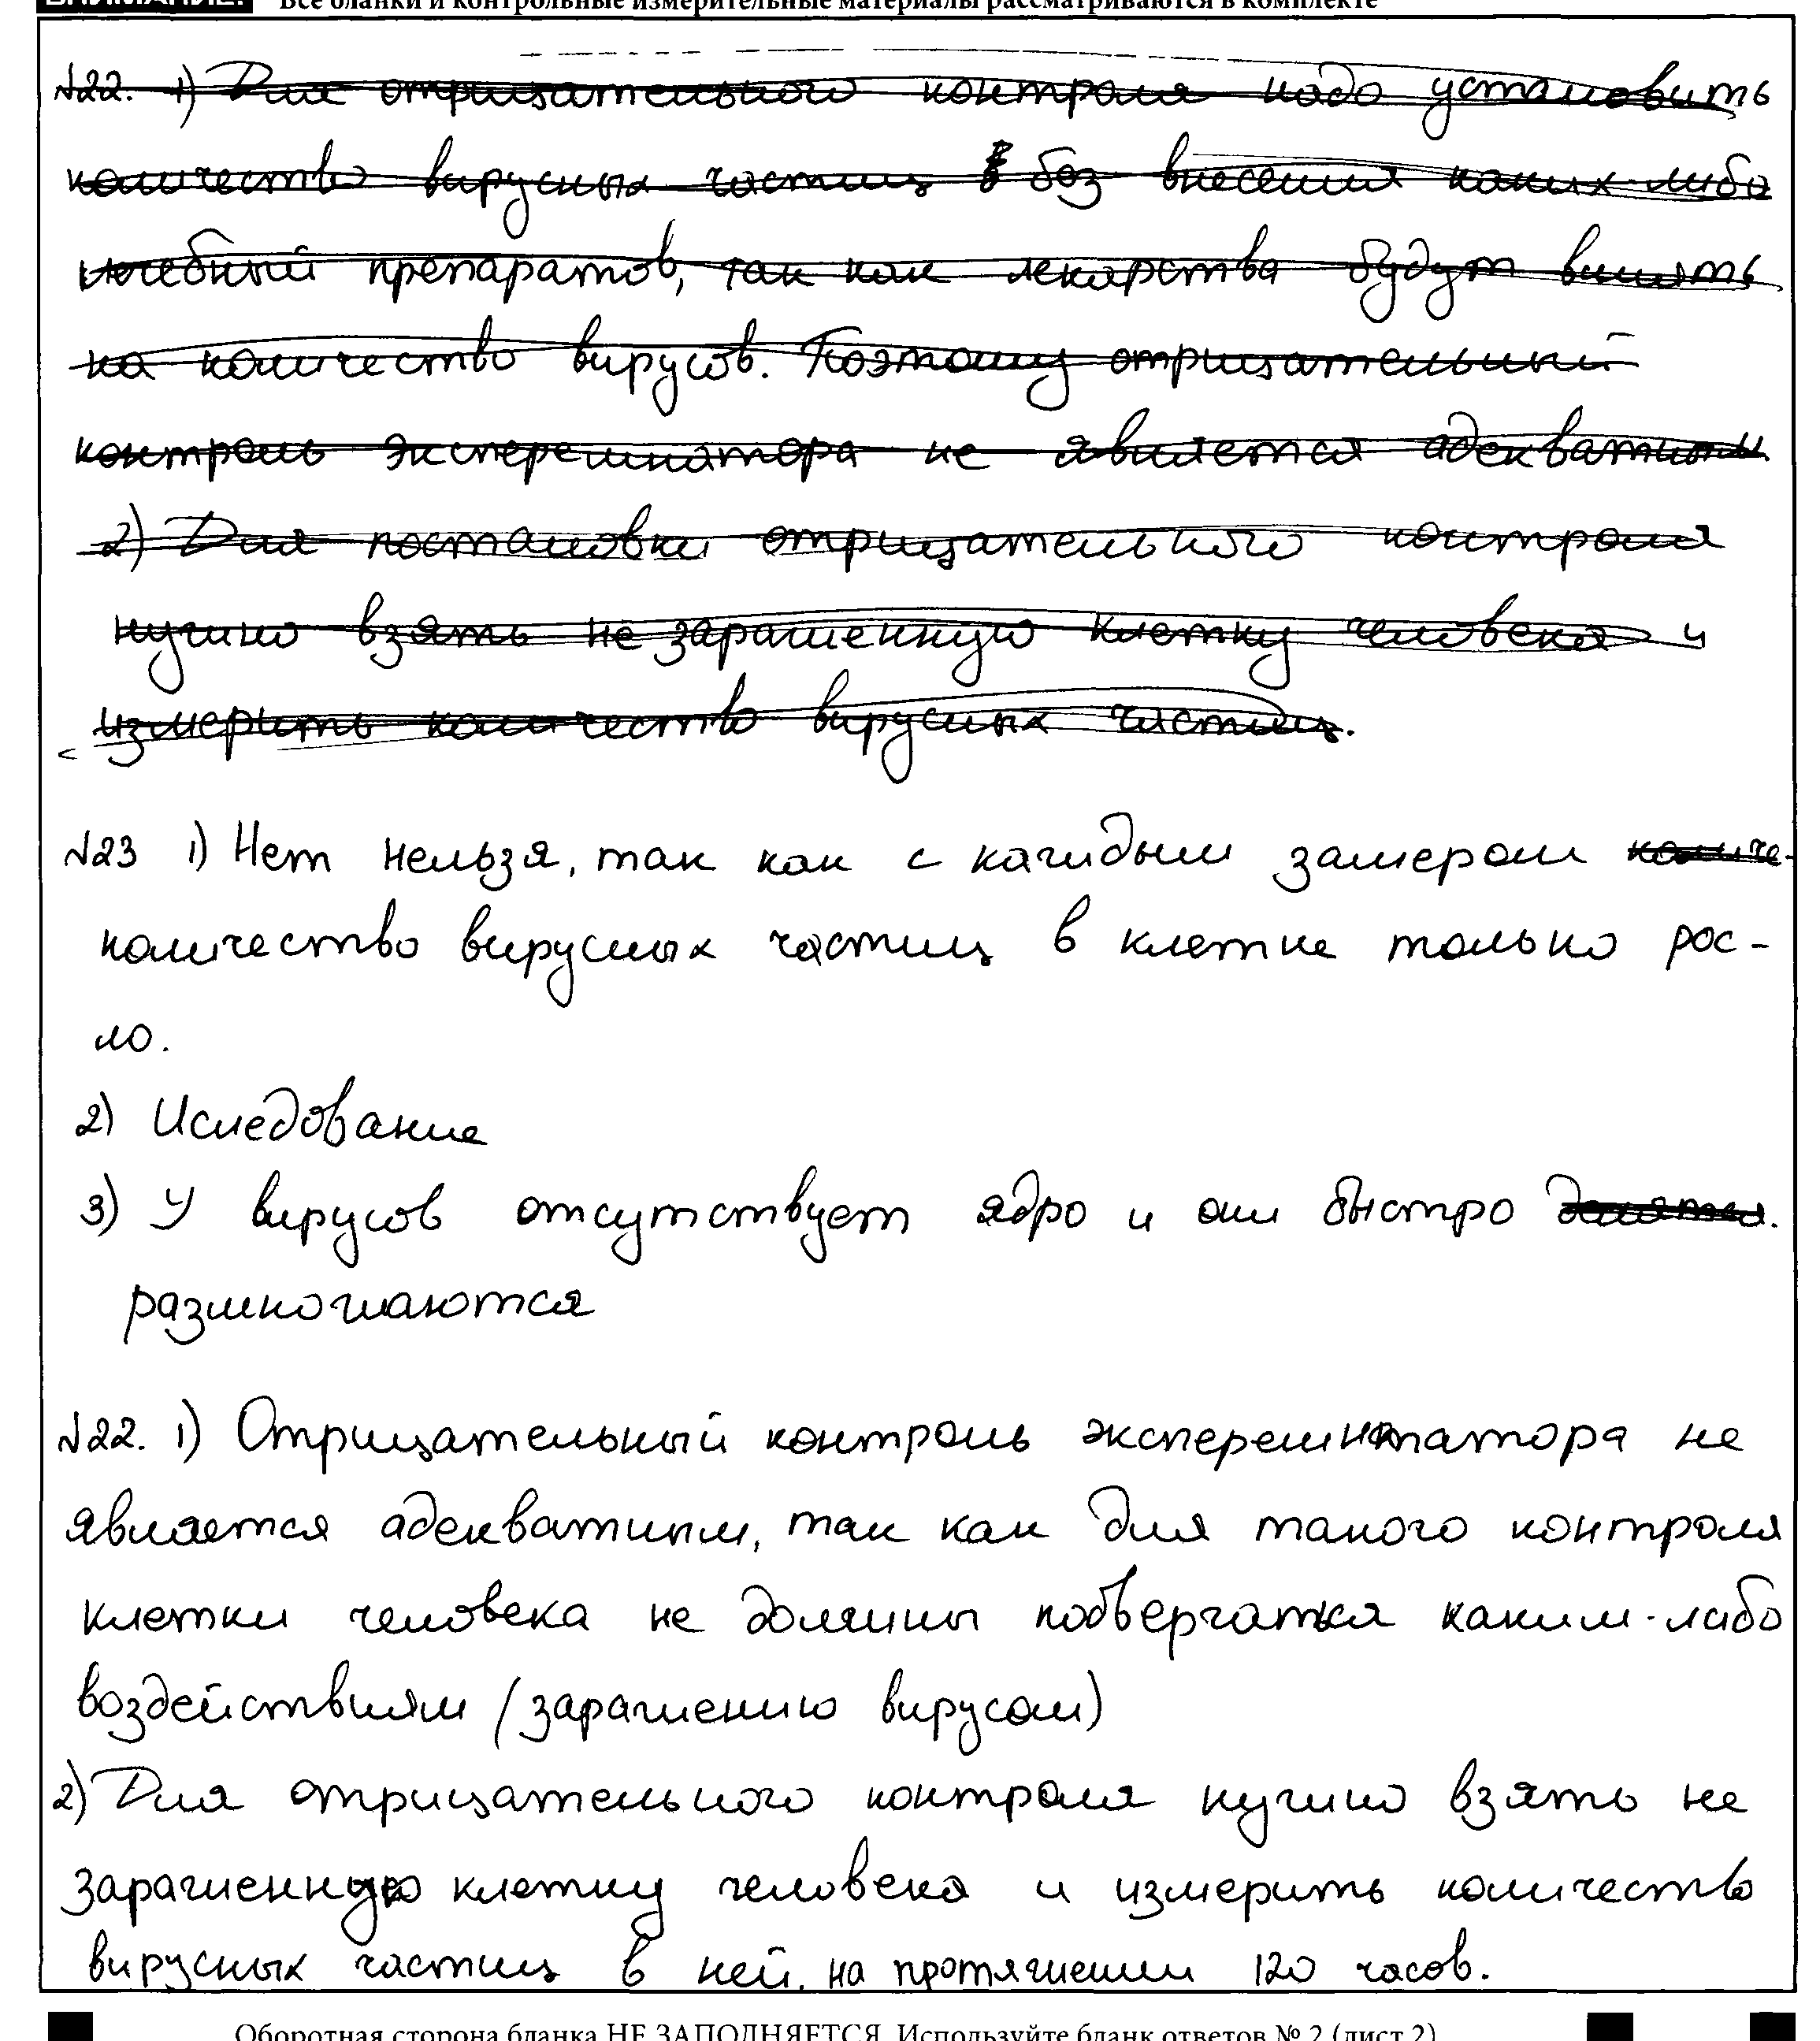 ВНИМАНИЕ! Все бланки и контрольные измерительные материалы рассматриваются в комплекте
№22. 1) Для отрицательного контроля надо установить
количество вирусных частиц без внесения каких-либо
лечебный препаратов, так как лекарства будут влиять
на количество вирусов. Поэтому отрицательный
контроль эксперементатора не является адекватным.
2) Для постановки отрицательного контроля
нужно взять не зараженную клетку человека и
измерить количество вирусных частиц.
№23 1) Нет нельзя, так как с каждым замером количе-
количество вирусных частиц в клетке только рос-
ло.
2) Иследование
3) У вирусов отсутствует ядро и они быстро делятся.
размножаются
№22. 1) Отрицательный контроль эксперементатора не
является адекватным, так как для такого контроля
клетки человека не должны подвергаться каким-либо
воздействиям (заражению вирусом)
2) Для отрицательного контроля нужно взять не
зараженную клетку человека и измерить количество
вирусных частиц в ней. на протяжении 120 часов.
Оборотная сторона бланка НЕ ЗАПОЛНЯЕТСЯ. Используйте бланк ответов № 2 (лист 2)